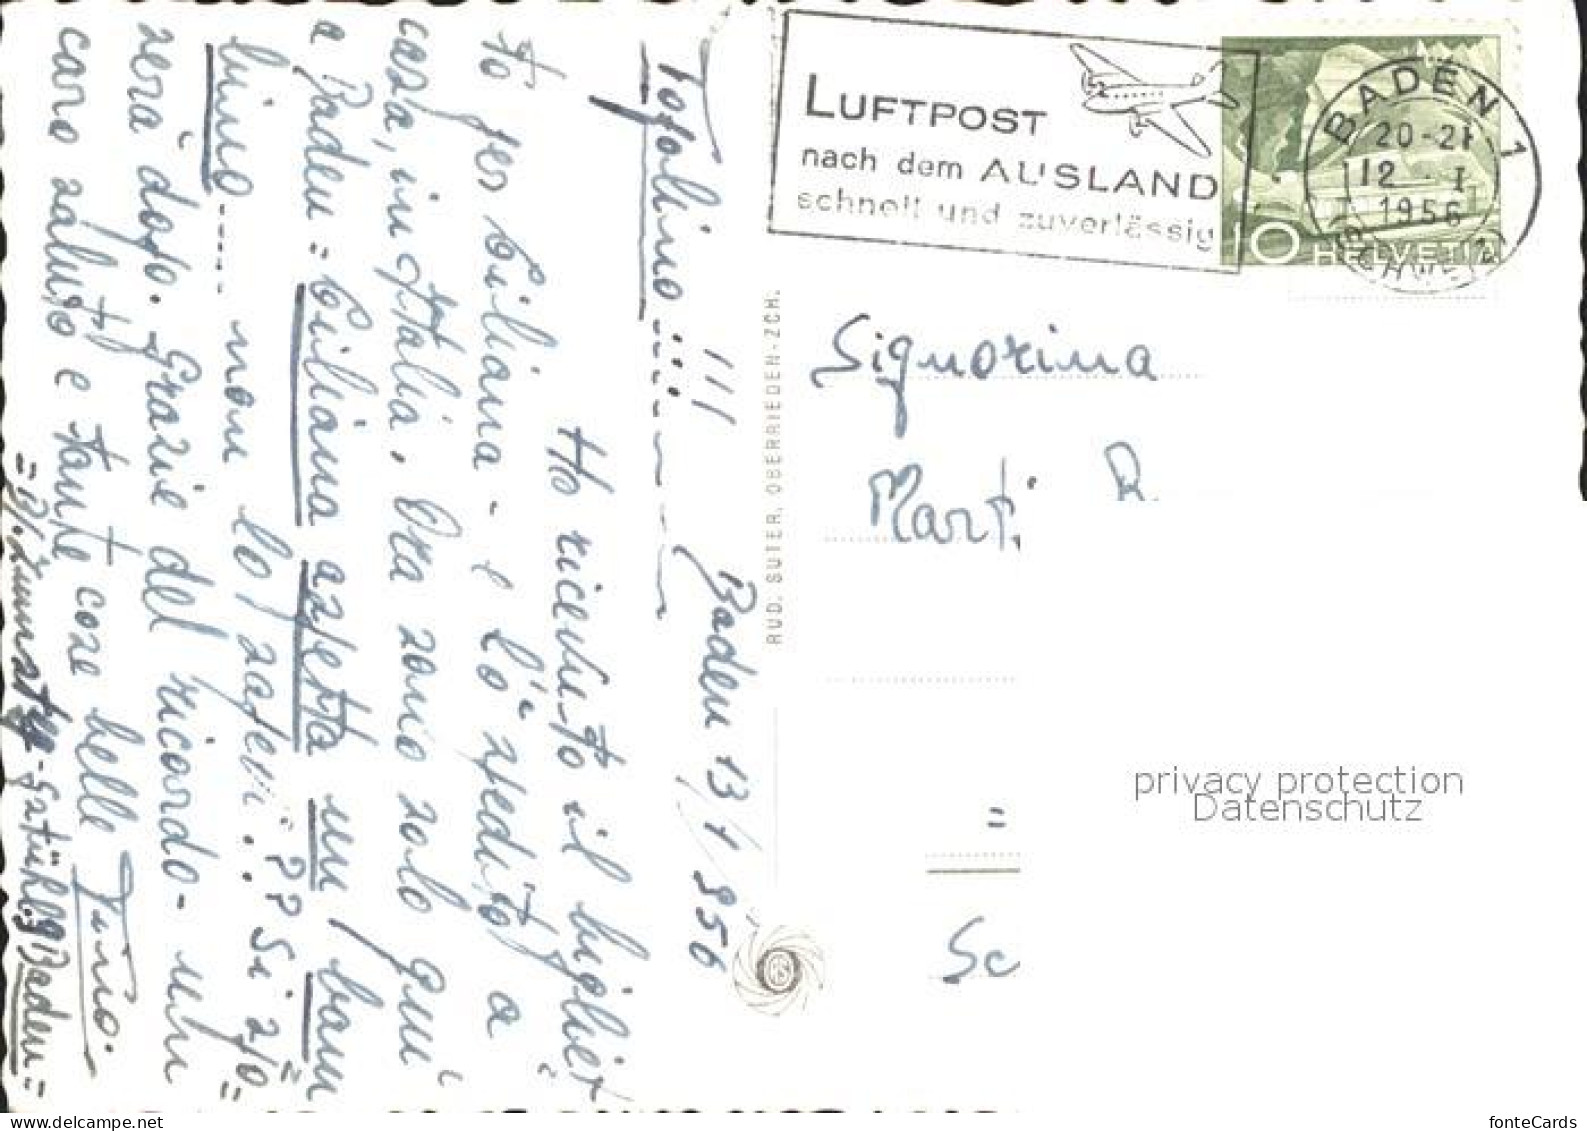 LUFTPOST
nach dem AUSLAND
schnell und zuverlässig
BADEN 1
20-21
12. I
1956
(SCHWEIZ)
10 HELVETIA
Signorina
Marti R
=
Sc
RUD. SUTER, OBERRIEDEN-ZCH.
RS
Baden 13/1/956
Topolino..... !!!
Ho ricevuto il bigliet
to per Liliana - e l'ò spedito a
casa, in Italia. Ora sono solo qui
a Baden = Liliana aspetta un bam
bino..... non lo sapevi..??? Si spo=
serà dopo. Grazie del ricordo - un
caro saluto e tante cose belle Tino.
Baden =
privacy protection
Datenschutz
fonteCards